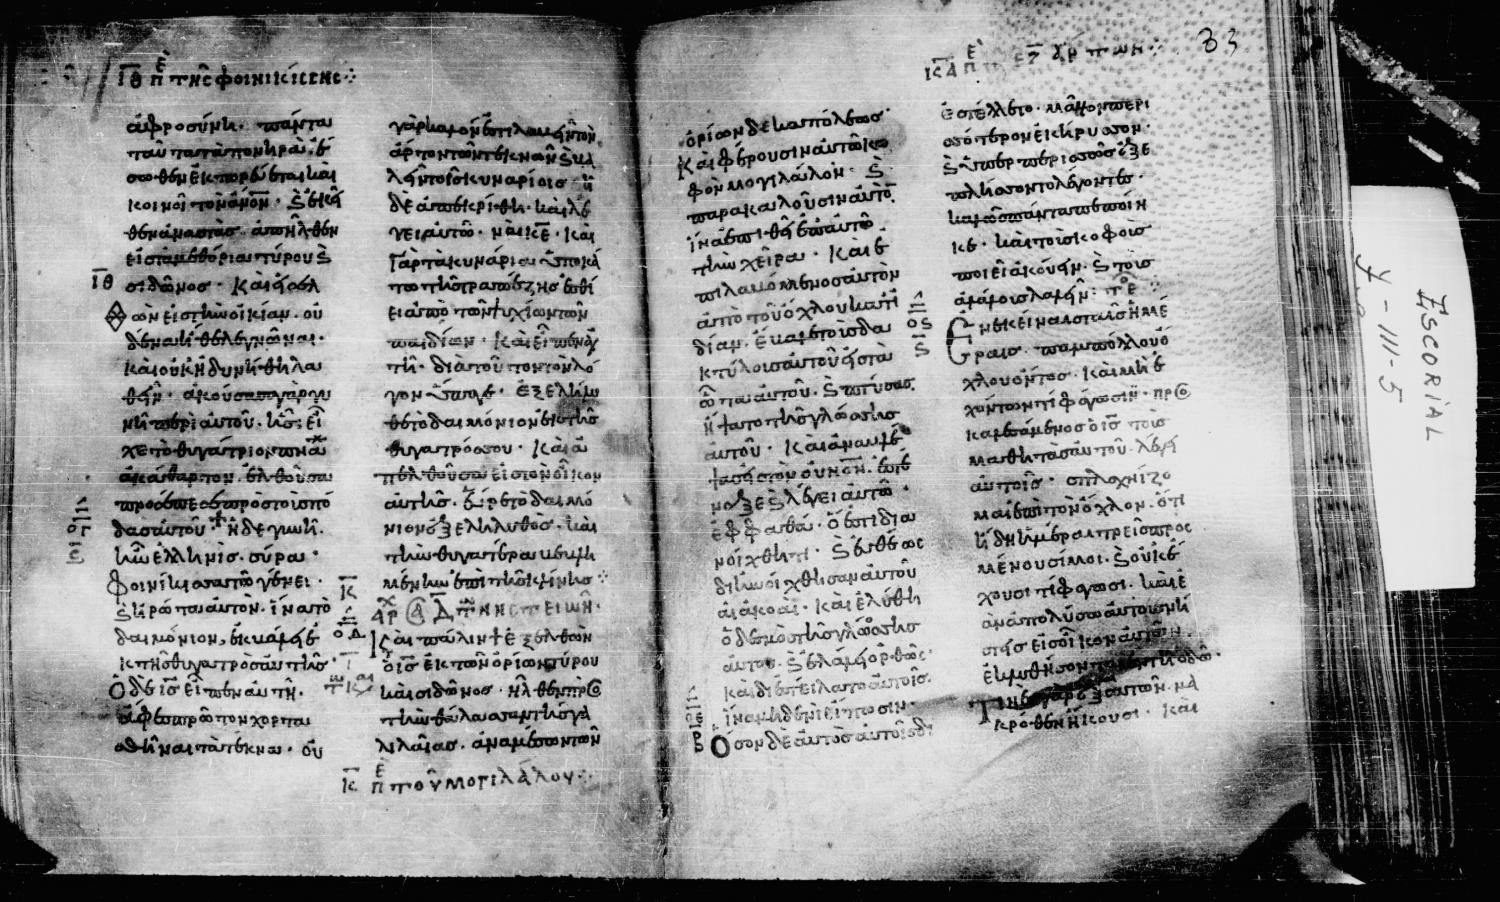 ΙΘ ΠΕ ΤΗC ΦΟΙΝΙΚΙCCΗC
ἀφροσύνη· πάντα
ταῦτα τὰ πονηρὰ ἔ
σωθεν ἐκπορεύεται καὶ
κοινοῖ τὸν ἄνον· κ ἐκεῖ
θεν ἀναστὰς ἀπῆλθεν
εἰς τὰ μεθόρια τύρου κ
ΙΘ
σιδῶνος· Καὶ εἰσελ
θὼν εἰς τὴν οἰκίαν· οὐ
δένα ἤθελε γνῶναι·
καὶ οὐκ ἠδυνήθη λα
θεῖν· ἀκούσασα γὰρ γυ
νὴ περὶ αὐτοῦ· ἧς εἶ
χε τὸ θυγάτριον πνα
ἀκάθαρτον· ἐλθοῦσα
προσέπεσε πρὸς τοὺς πό
δας αὐτοῦ· ἡ δὲ γυνὴ
ἦν ἑλληνὶς· σύρα
Φοινίκισσα τῶ γένει·
κ ἠρώτα αὐτὸν· ἵνα τὸ
δαιμόνιον ἐκβάλη ἐ
κ τῆς θυγατρὸς αὐτῆς·
Ὁ δὲ ις εἶπεν αὐτῆ·
ἄφες πρῶτον χορτα
σθῆναι τὰ τέκνα· οὐ
γὰρ καλόν ἐστι λαβεῖν τὸν
ἄρτον τῶν τέκνων κ βα
λεῖν τοῖς κυναρίοις· ἡ
δὲ ἀπεκρίθη· καὶ λέ
γει αὐτῶ· ναὶ κε· καὶ
γὰρ τὰ κυνάρια ὑποκά
τω τῆς τραπέζης ἐσθί
ει ἀπὸ τῶν ψιχίων τῶν
παιδίων· Καὶ εἶπεν αὐ
τῆ· διὰ τοῦτον τὸν λό
γον ὕπαγε· ἐξελήλυ
θε τὸ δαιμόνιον ἐκ τῆς
θυγατρός σου· Καὶ ἀ
πελθοῦσα εἰς τὸν οἶκον
αὐτῆς· εὗρε τὸ δαιμό
νιον ἐξεληλυθὸς· καὶ
τὴν θυγατέρα βεβλη
μένην ἐπὶ τῆς κλίνης
Κ
Καὶ πάλιν ἐξελθὼν
ὁ ις ἐκ τῶν ὁρίων τύρου
καὶ σιδῶνος· ἦλθεν πρὸς
τὴν θάλασσαν τῆς γα
λιλαίας· ἀναμέσον τῶν
Κ ΠΕ ΤΟΥ ΜΟΓΙΛΑΛΟΥ
ὁρίων δεκαπόλεως·
Καὶ φέρουσιν αὐτῶ κω
φὸν μογιλάλον· κ
παρακαλοῦσιν αὐτὸν
ἵνα ἐπιθῆ ἐπ αὐτῶ
τὴν χεῖρα· Καὶ ἐ
πιλαβόμενος αὐτὸν
ἀπὸ τοῦ ὄχλου κατ ἰ
δίαν· ἔβαλε τοὺς δα
κτύλους αὐτοῦ εἰς τὰ
ὦτα αὐτοῦ· κ πτύσας
ἥψατο τῆς γλώσσης
αὐτοῦ· Καὶ ἀναβλέ
ψας εἰς τὸν οὐνον· ἐστέ
ναξε κ λέγει αὐτῶ·
ἐφφαθά· ὅ ἐστι δια
νοίχθητι· κ εὐθέως
διηνοίχθησαν αὐτοῦ
αἱ ἀκοαί· Καὶ ἐλύθη
ὁ δεσμὸς τῆς γλώσσης
αὐτοῦ· κ ἐλάλει ὀρθῶς·
καὶ διεστείλατο αὐτοῖς
ἵνα μηδενὶ εἴπωσιν·
Ὅσον δὲ αὐτὸς αὐτοῖς δι
33
ἐστέλλετο· μᾶλλον περι
σσότερον ἐκήρυσσον·
κ ὑπερπερισσῶς ἐξε
πλήσσοντο λέγοντες·
καλῶς πάντα πεποίη
κε· καὶ τοὺς κωφοὺς
ποιεῖ ἀκούειν· κ τοὺς
ἀλάλους λαλεῖν·
Ἐν ἐκείναις ταῖς ἡμέ
ραις παμπόλλου ὄ
χλου ὄντος· καὶ μὴ ἐ
χόντων τί φάγωσιν· προς
καλεσάμενος ὁ ις τοὺς
μαθητὰς αὐτοῦ· λέγει
αὐτοῖς· σπλαχνίζο
μαι ἐπὶ τὸν ὄχλον· ὅτι
ἤδη ἡμέραι τρεῖς προς
μένουσί μοι· κ οὐκ ἔ
χουσι τί φάγωσι· καὶ ἐ
ἀν ἀπολύσω αὐτοὺς νή
στεις εἰς οἶκον αὐτῶν·
ἐκλυθήσονται ἐν τῆ ὁδῶ·
Τινὲς γὰρ ἐξ αὐτῶν μα
κρόθεν ἥκουσι· καὶ
ESCORIAL
Y-III-5